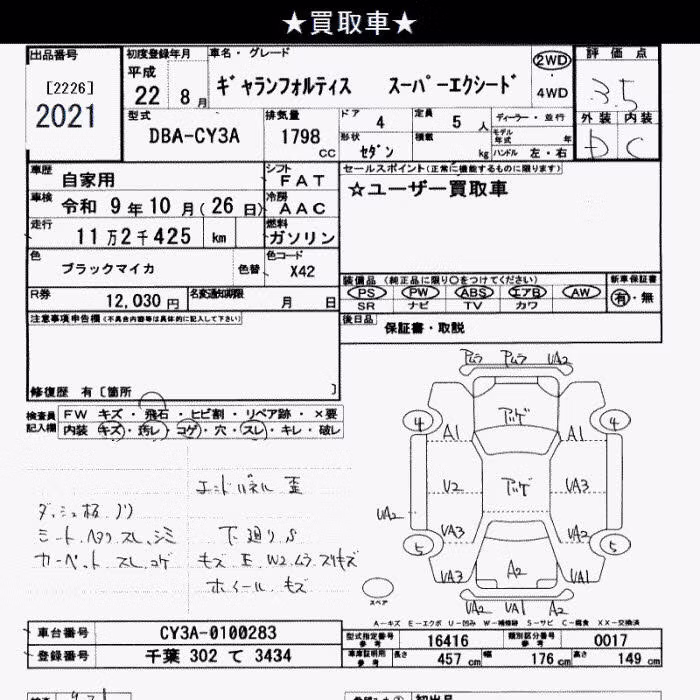 ★買取車★
出品番号
[2226]
2021
初度登録年月
平成
22 年 8 月
車名・グレード
ギャランフォルティス スーパーエクシード
2WD
・
4WD
評価点
3.5
外装 内装
D C
型式
DBA-CY3A
排気量
1798 CC
ドア 4
定員 5 人
形状 セダン
積載 kg
ディーラー・並行
モデル年式 年
ハンドル 左・右
車歴 自家用
シフト FAT
車検 令和 9 年 10 月(26 日)
冷房 AAC
走行 11万2千425 km
燃料 ガソリン
色 ブラックマイカ 色替
色コード X42
R券 12,030 円
名変通知期限 月 日
セールスポイント(正常に機能するものに限ります)
☆ユーザー買取車
装備品(純正品に限り○をつけてください)
PS PW ABS エアB AW
SR ナビ TV カワ
新車保証書
有・無
後日品 保証書・取説
注意事項申告欄(不具合内容等は具体的に記入して下さい)
修復歴 有〔箇所 〕
検査員記入欄
FW キズ・飛石・ヒビ割・リペア跡・×要
内装 キズ・汚レ・コゲ・穴・スレ・キレ・破レ
エンドパネル 歪
ダッシュ板ノリ
シート、ヘタリ、スレ、シミ
カーペット スレ、コゲ
下廻りS
キズ、E、W2、ムラ、スリキズ
ホイール、キズ
ムラ UA2
4 A1 A1 4
U2 UA3
UA2 UA2
UA3 UA3
5 5
UA3 A2 UA1
UA2 UA1 A2
スペア
A-キズ E-エクボ U-凹み W-補修跡 S-サビ C-腐食 XX-交換済
車台番号 CY3A-0100283
登録番号 千葉 302 て 3434
型式指定番号 参考 16416
類別区分番号 参考 0017
車庫証明用 参考 長さ 457 cm 幅 176 cm 高さ 149 cm